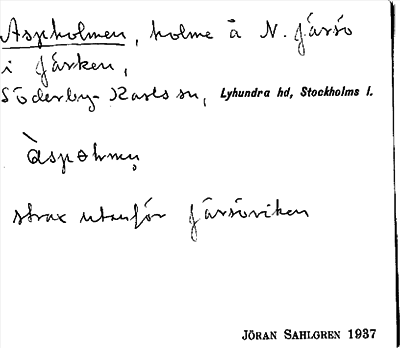 Aspholmen, holme å N. Järsö
i fjärden,
Söderby-Karls sn, Lyhundra hd, Stockholms l.
strax utanför Järsöviken
JÖRAN SAHLGREN 1937